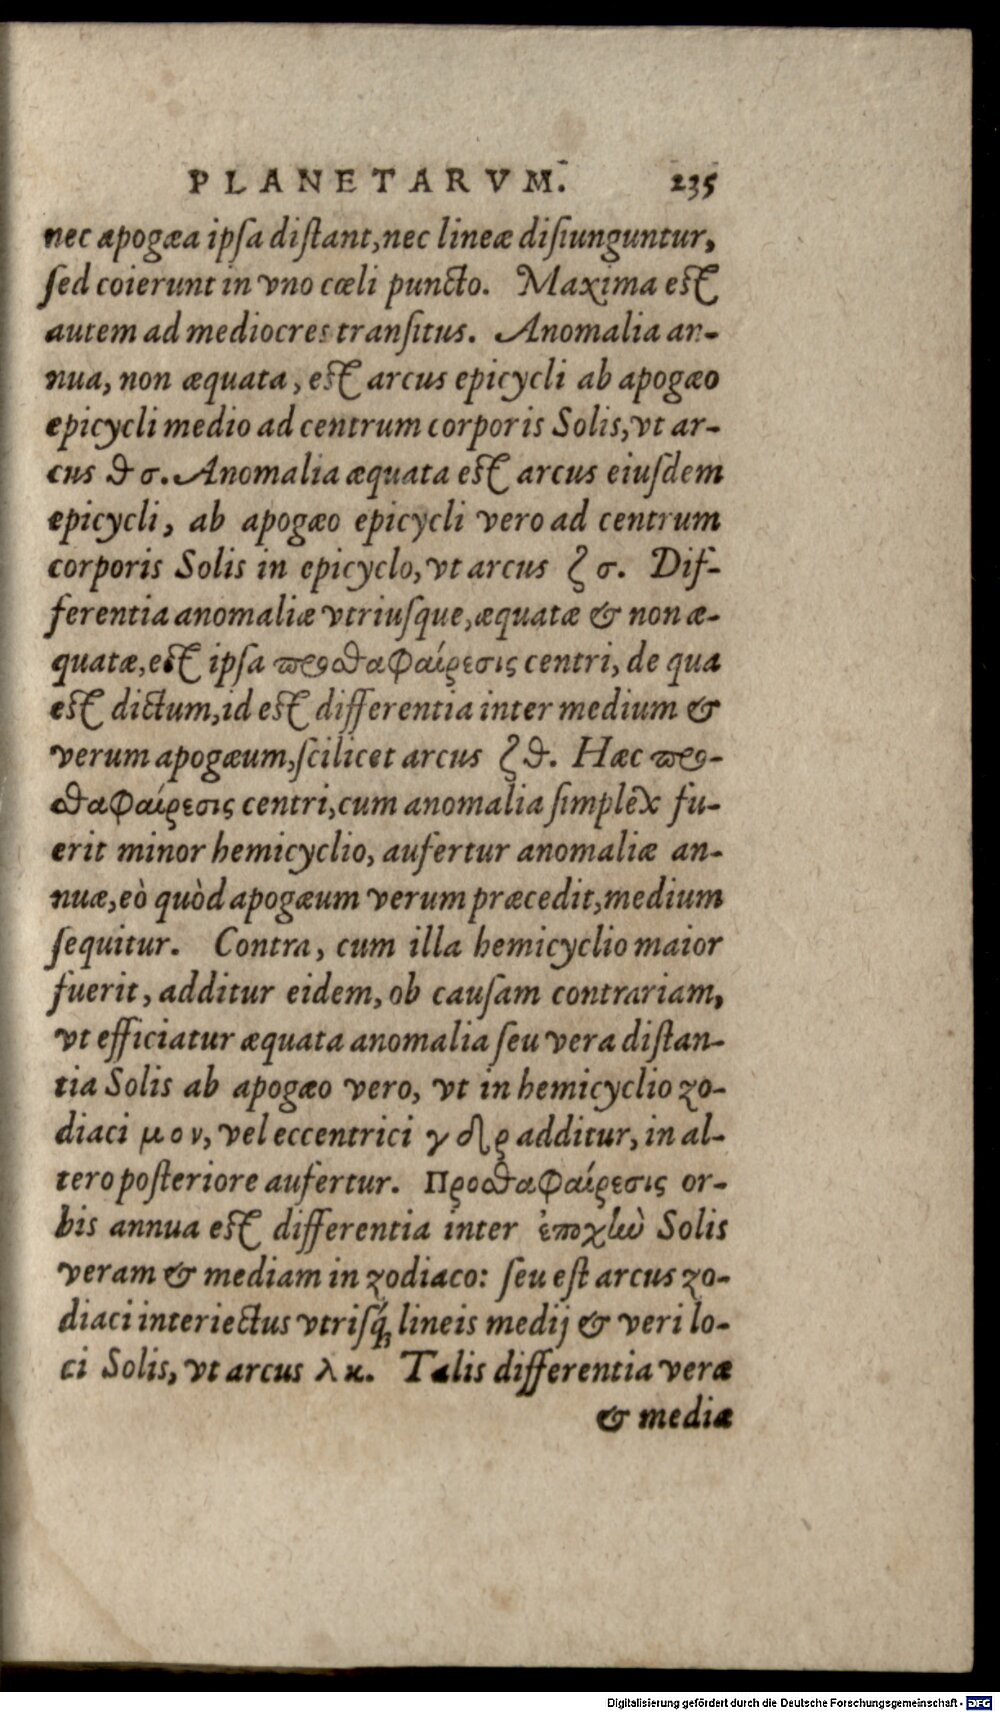 PLANETARVM. 235
nec apogæa ipſa diſtant, nec lineæ diſiunguntur,
ſed coierunt in vno cœli puncto. Maxima eſt
autem ad mediocres tranſitus. Anomalia an-
nua, non æquata, eſt arcus epicycli ab apogæo
epicycli medio ad centrum corporis Solis, vt ar-
cus ϑ σ. Anomalia æquata eſt arcus eiuſdem
epicycli, ab apogæo epicycli vero ad centrum
corporis Solis in epicyclo, vt arcus ζ σ. Dif-
ferentia anomaliæ vtriuſque, æquatæ & non æ-
quatæ, eſt ipſa προϑαφαίρεσις centri, de qua
eſt dictum, id eſt differentia inter medium &
verum apogæum, ſcilicet arcus ζ ϑ. Hæc προ-
ϑαφαίρεσις centri, cum anomalia ſimplex fu-
erit minor hemicyclio, aufertur anomaliæ an-
nuæ, eò quòd apogæum verum præcedit, medium
ſequitur. Contra, cum illa hemicyclio maior
fuerit, additur eidem, ob cauſam contrariam,
vt efficiatur æquata anomalia ſeu vera diſtan-
tia Solis ab apogæo vero, vt in hemicyclio zo-
diaci μ ο ν, vel eccentrici γ δ ρ additur, in al-
tero poſteriore aufertur. Προϑαφαίρεσις or-
bis annua eſt differentia inter ἐποχὴν Solis
veram & mediam in zodiaco: ſeu eſt arcus zo-
diaci interiectus vtriſq́; lineis medij & veri lo-
ci Solis, vt arcus λ κ. Talis differentia veræ
& mediæ
Digitalisierung gefördert durch die Deutsche Forschungsgemeinschaft - DFG